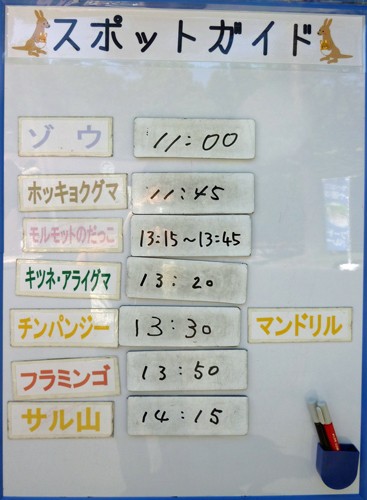 スポットガイド
ゾウ 11:00
ホッキョクグマ 11:45
モルモットのだっこ 13:15～13:45
キツネ・アライグマ 13:20
チンパンジー 13:30 マンドリル
フラミンゴ 13:50
サル山 14:15